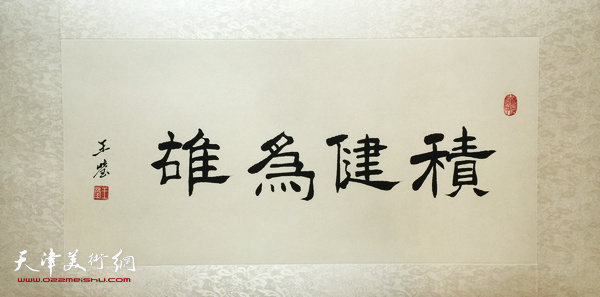 積健為雄
王瑩
天津美術網
www.022meishu.com